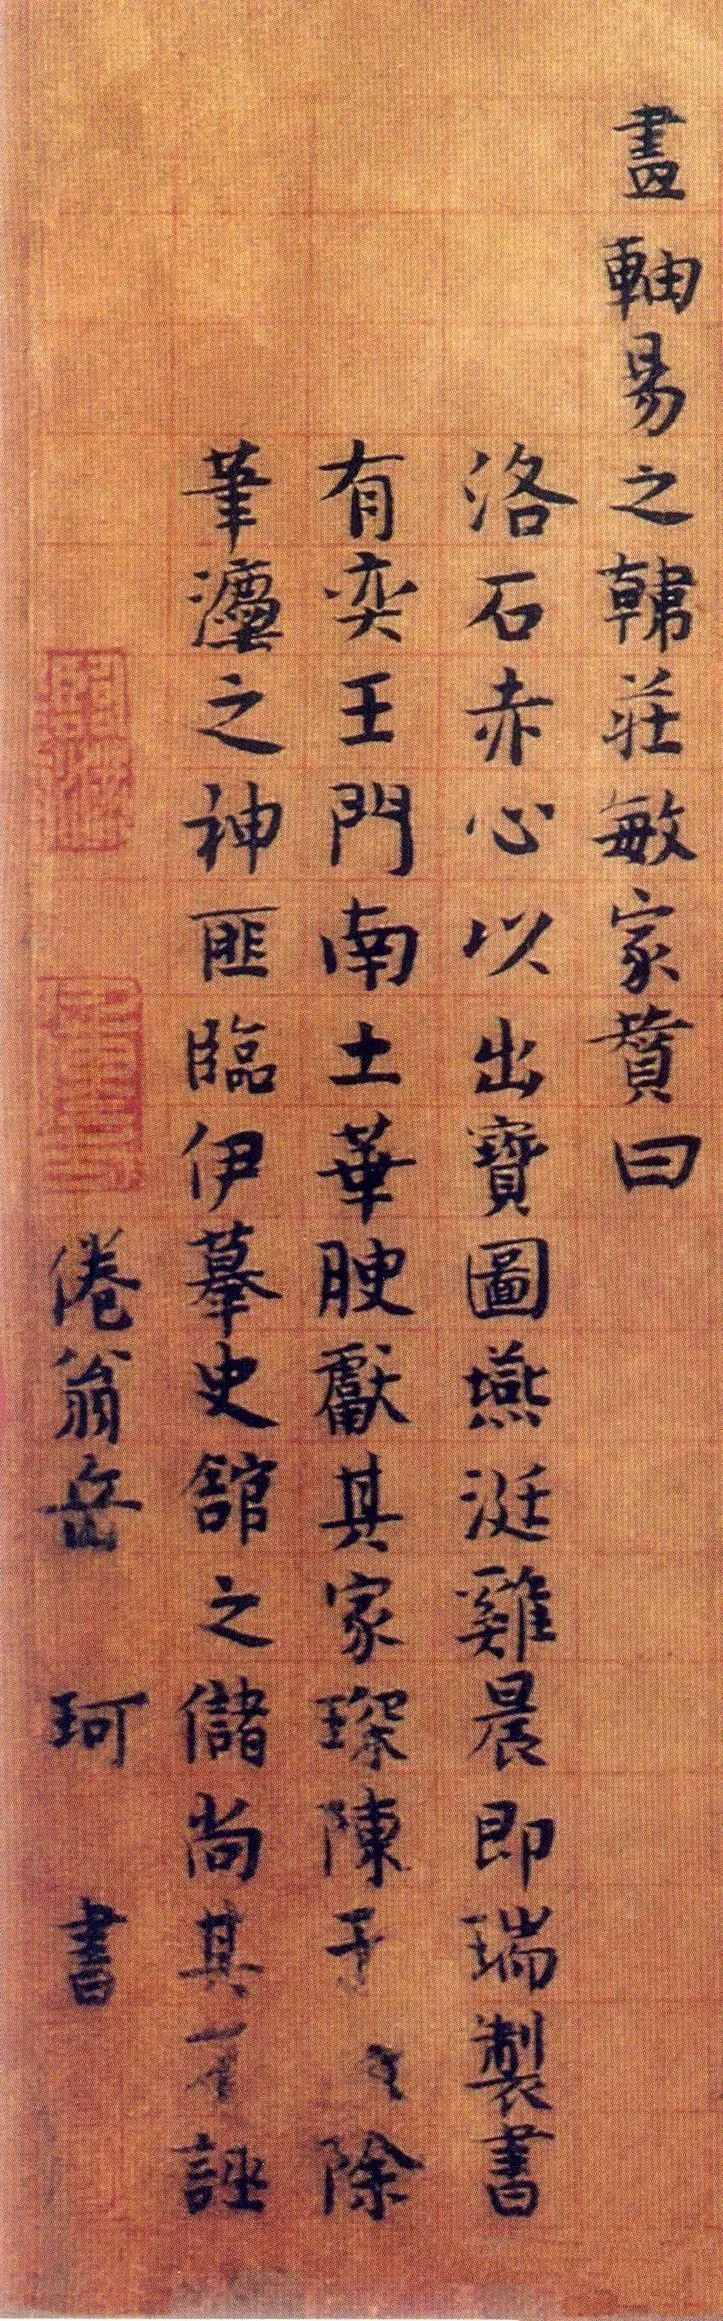 畫軸易之韓莊敏家贊曰
洛石赤心以出寶圖燕涎雞晨即瑞製書
有奕王門南土華腴獻其家琛陳于除
筆灋之神匪臨伊摹史舘之儲尚其誣
倦翁岳珂書